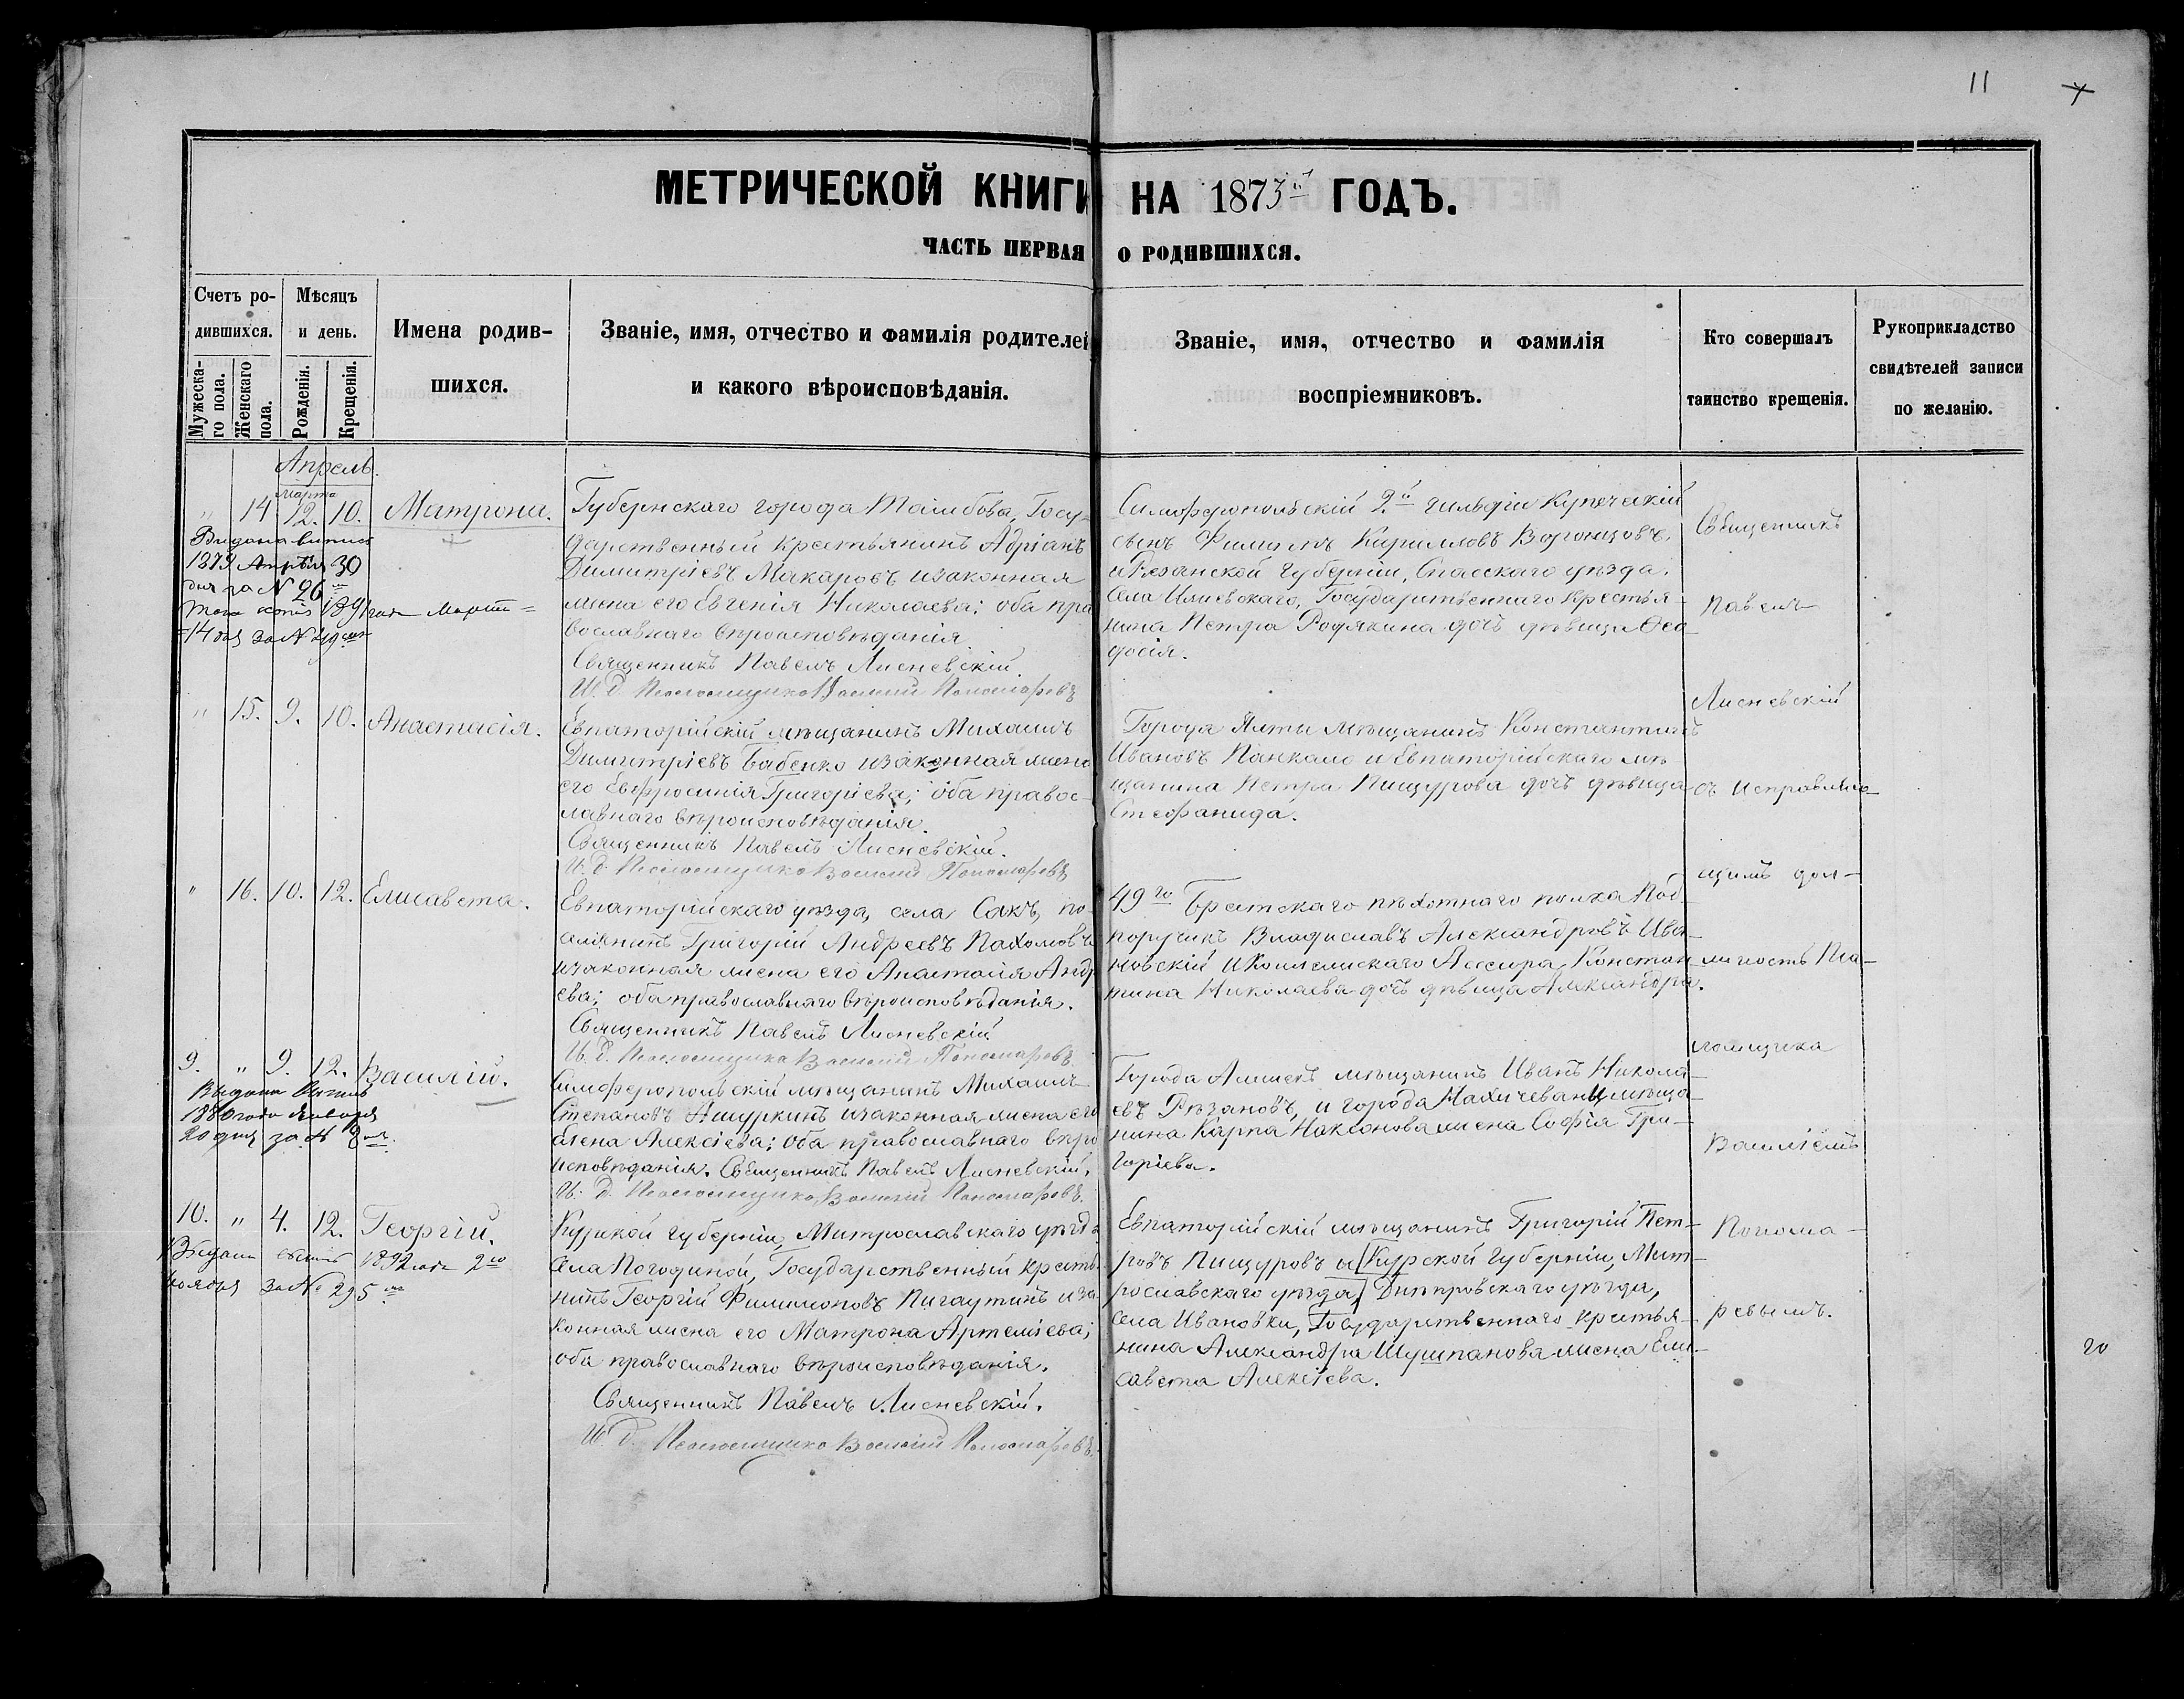 11
МЕТРИЧЕСКОЙ КНИГИ НА 1873й ГОДЪ.
ЧАСТЬ ПЕРВАЯ О РОДИВШИХСЯ.
Счетъ ро-
дившихся.
Мужеска-
го пола.
Женскаго
пола.
Мѣсяцъ
и день.
Рожденія.
Крещенія.
Имена родив-
шихся.
Званіе, имя, отчество и фамилія родителей
и какого вѣроисповѣданія.
Званіе, имя, отчество и фамилія
воспріемниковъ.
Кто совершалъ
таинство крещенія.
Рукоприкладство
свидѣтелей записи
по желанію.
Апрель.
Марта
" 14 12. 10. Матрона.
Выдана выпись
1879 Апрѣля 30
дня за № 26
1891 года Марта
14 дня за №
Губернскаго города Тамбова, Госу-
дарственный крестьянинъ Адріанъ
Димитріевъ Макаровъ изаконная
жена его Евгенія Николаева; оба пра
вославнаго вѣроисповѣданія
Священникъ Павелъ Лисневскій
И. д. Псаломщика Василий Пономаревъ
Симферопольскій 2й гильдіи Купеческій
сынъ Филиппъ Кирилловъ Воронцовъ,
и Рязанской Губерніи, Спасскаго уѣзда,
села Ижевскаго, Государственнаго крестья-
нина Петра Родякина дочь дѣвица Ѳео
досія.
" 15. 9. 10. Анастасія.
Евпаторійскій мѣщанинъ Михаилъ
Димитріевъ Бабенко изаконная жена
его Евфросинія Григоріева; оба правос-
лавнаго вѣроисповѣданія.
Священникъ Павелъ Лисневскій.
И. д. Псаломщика Василий Пономаревъ
Города Ялты мѣщанинъ Константинъ
Ивановъ Панкало и Евпаторійскаго мѣ
щанина Петра Пищурова дочь дѣвица
Стефанида.
" 16. 10. 12. Елисавета.
Евпаторійскаго уѣзда, села Сакъ, по-
селянинъ Григорій Андреевъ Пахомовъ
изаконная жена его Анастасія Андр
ева; оба православнаго вѣроисповѣданія.
Священникъ Павелъ Лисневскій
И. д. Псаломщика Василий Пономаревъ
49го Брестскаго пѣхотнаго полка Под-
поручикъ Владиславъ Александровъ Ива-
новскій и Коллежскаго Асесора Констан
тина Николаева дочь дѣвица Александра.
9. " 9. 12. Василій.
Выдана выпись
1880 года Января
20 дня за №
Симферопольскій мѣщанинъ Михаилъ
Степановъ Ашуркинъ изаконная жена его
Елена Алексіева; оба православнаго вѣро
исповѣданія. Священникъ Павелъ Лисневскій.
И. д. Псаломщика Василий Пономаревъ.
Города Алешекъ мѣщанинъ Иванъ Никола-
евъ Рѣзановъ, и города Нахичевани мѣща-
нина Карпа Наконова жена Софія Гри-
горіева.
10. " 4. 12. Георгій.
Выдана 1892 года 2го
ноября за № 295
Курской губерніи, Митрославскаго уѣзда
села Погодиной, Государственный крестья
нинъ Георгій Филимоновъ Пигаутинъ иза
конная жена его Матрона Артеміева;
оба православнаго вѣроисповѣданія.
Священникъ Павелъ Лисневскій.
И. д. Псаломщика Василий Пономаревъ.
Евпаторійскій мѣщанинъ Григорій Пет-
ровъ Пищуровъ и Курской Губерніи, Мит-
рославскаго уѣзда, Днѣпровскаго уѣзда,
села Ивановки, Государственнаго крестья-
нина Александра Шушпанова жена Ели-
савета Алексіева.
Священникъ
Павелъ
Лисневскій
съ исправляю-
щимъ дол-
жность Пса-
ломщика
Василіемъ
Понома-
ревымъ.